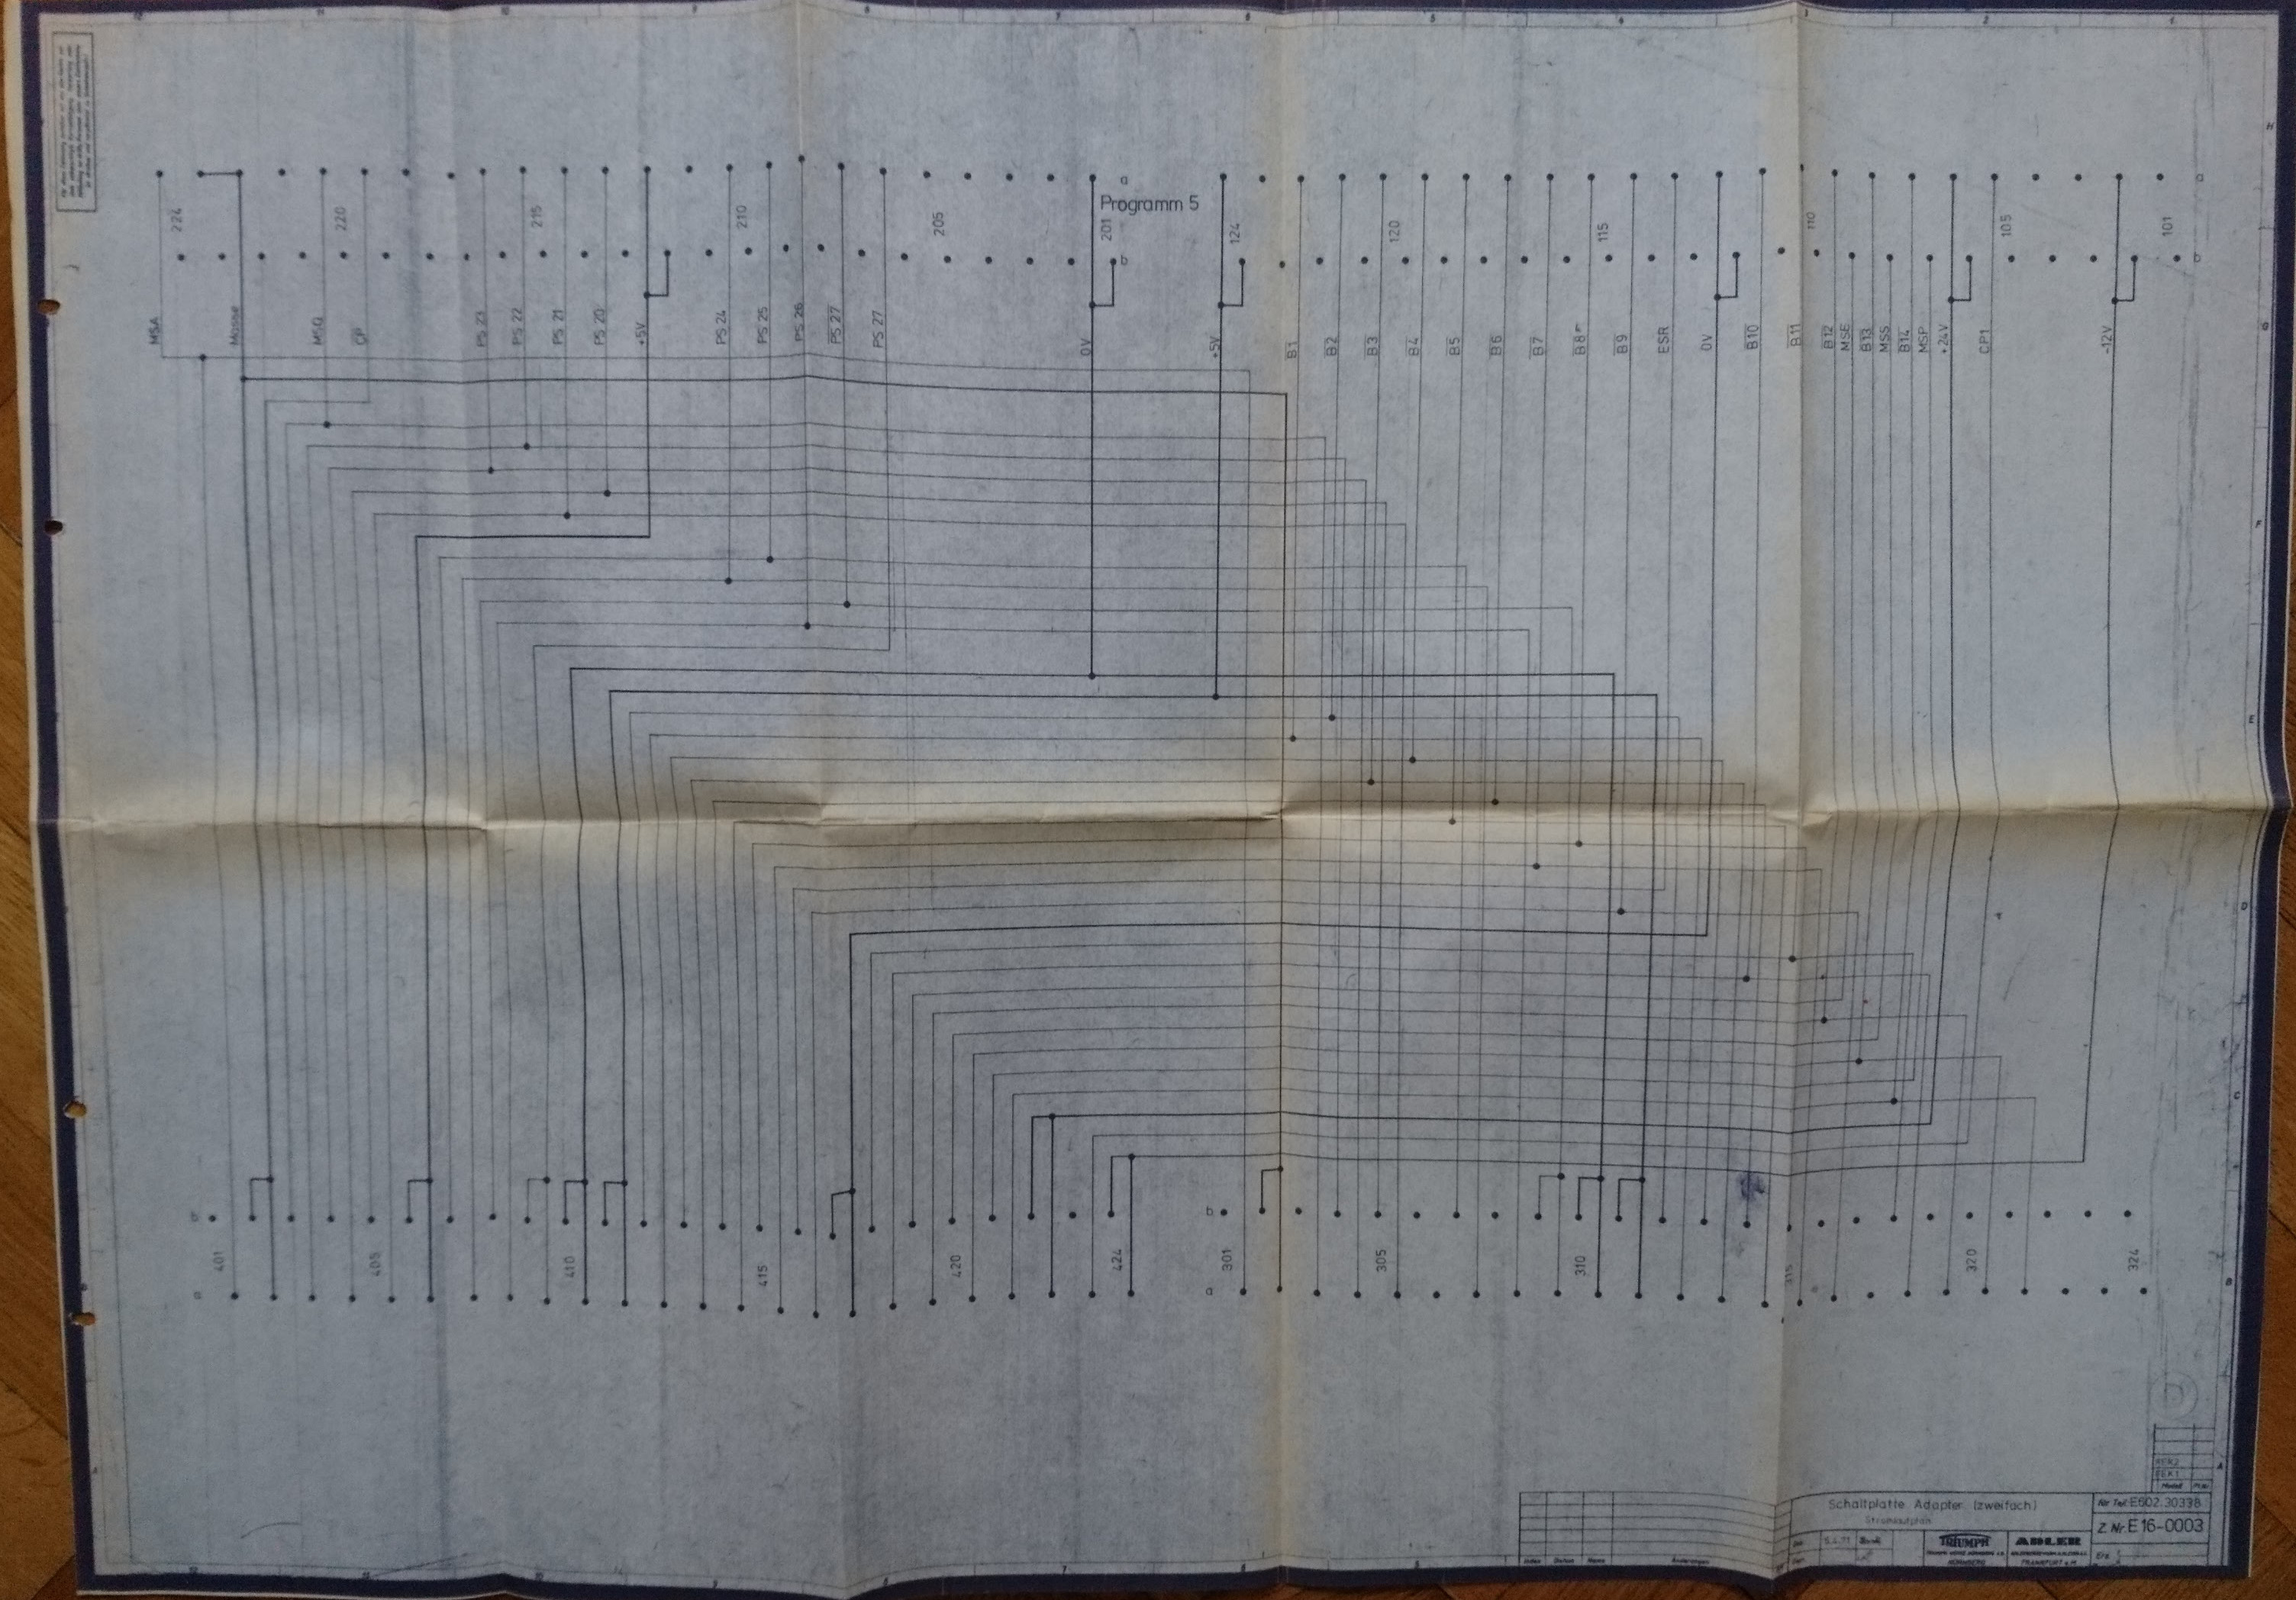 Programm 5
a
a
224
220
215
210
205
201
124
120
115
110
105
101
b
b
MSA
Masse
MSQ
CP
PS 23
PS 22
PS 21
PS 20
+5V
PS 24
PS 25
PS 26
PS 27
PS 27
0V
+5V
B1
B2
B3
B4
B5
B6
B7
B8
B9
ESR
0V
B10
B11
B12
MSE
B13
MSS
B14
MSP
+24V
CP1
-12V
b
401
405
410
415
420
424
301
305
310
315
320
324
a
REK2
REK1
Modell
Schaltplatte Adapter (zweifach)
Stromlaufplan
Nr Teil E602.30338
Z. Nr. E 16-0003
TRIUMPH
NÜRNBERG
ADLER
FRANKFURT a.M.
Index
Datum
Name
Änderungen